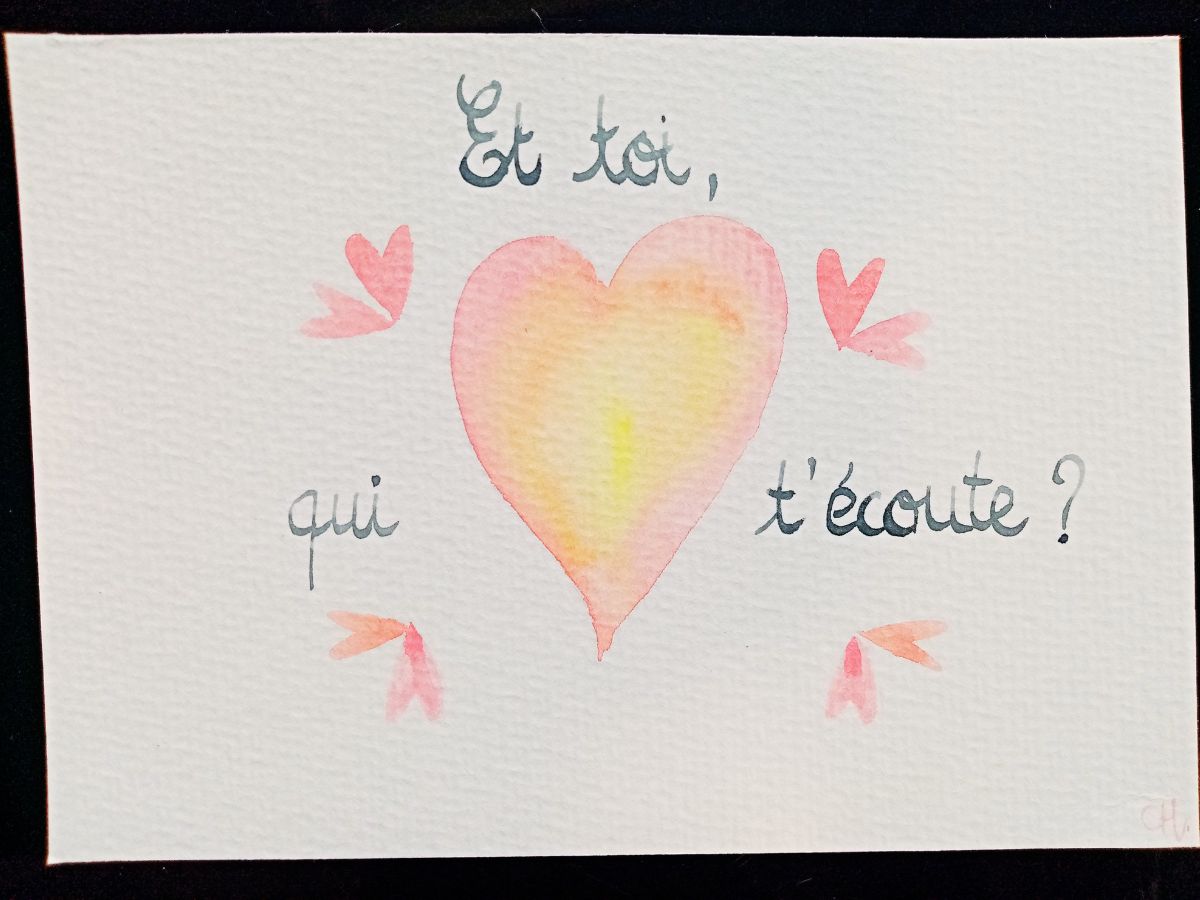 Et toi,
qui t'écoute ?
CH.